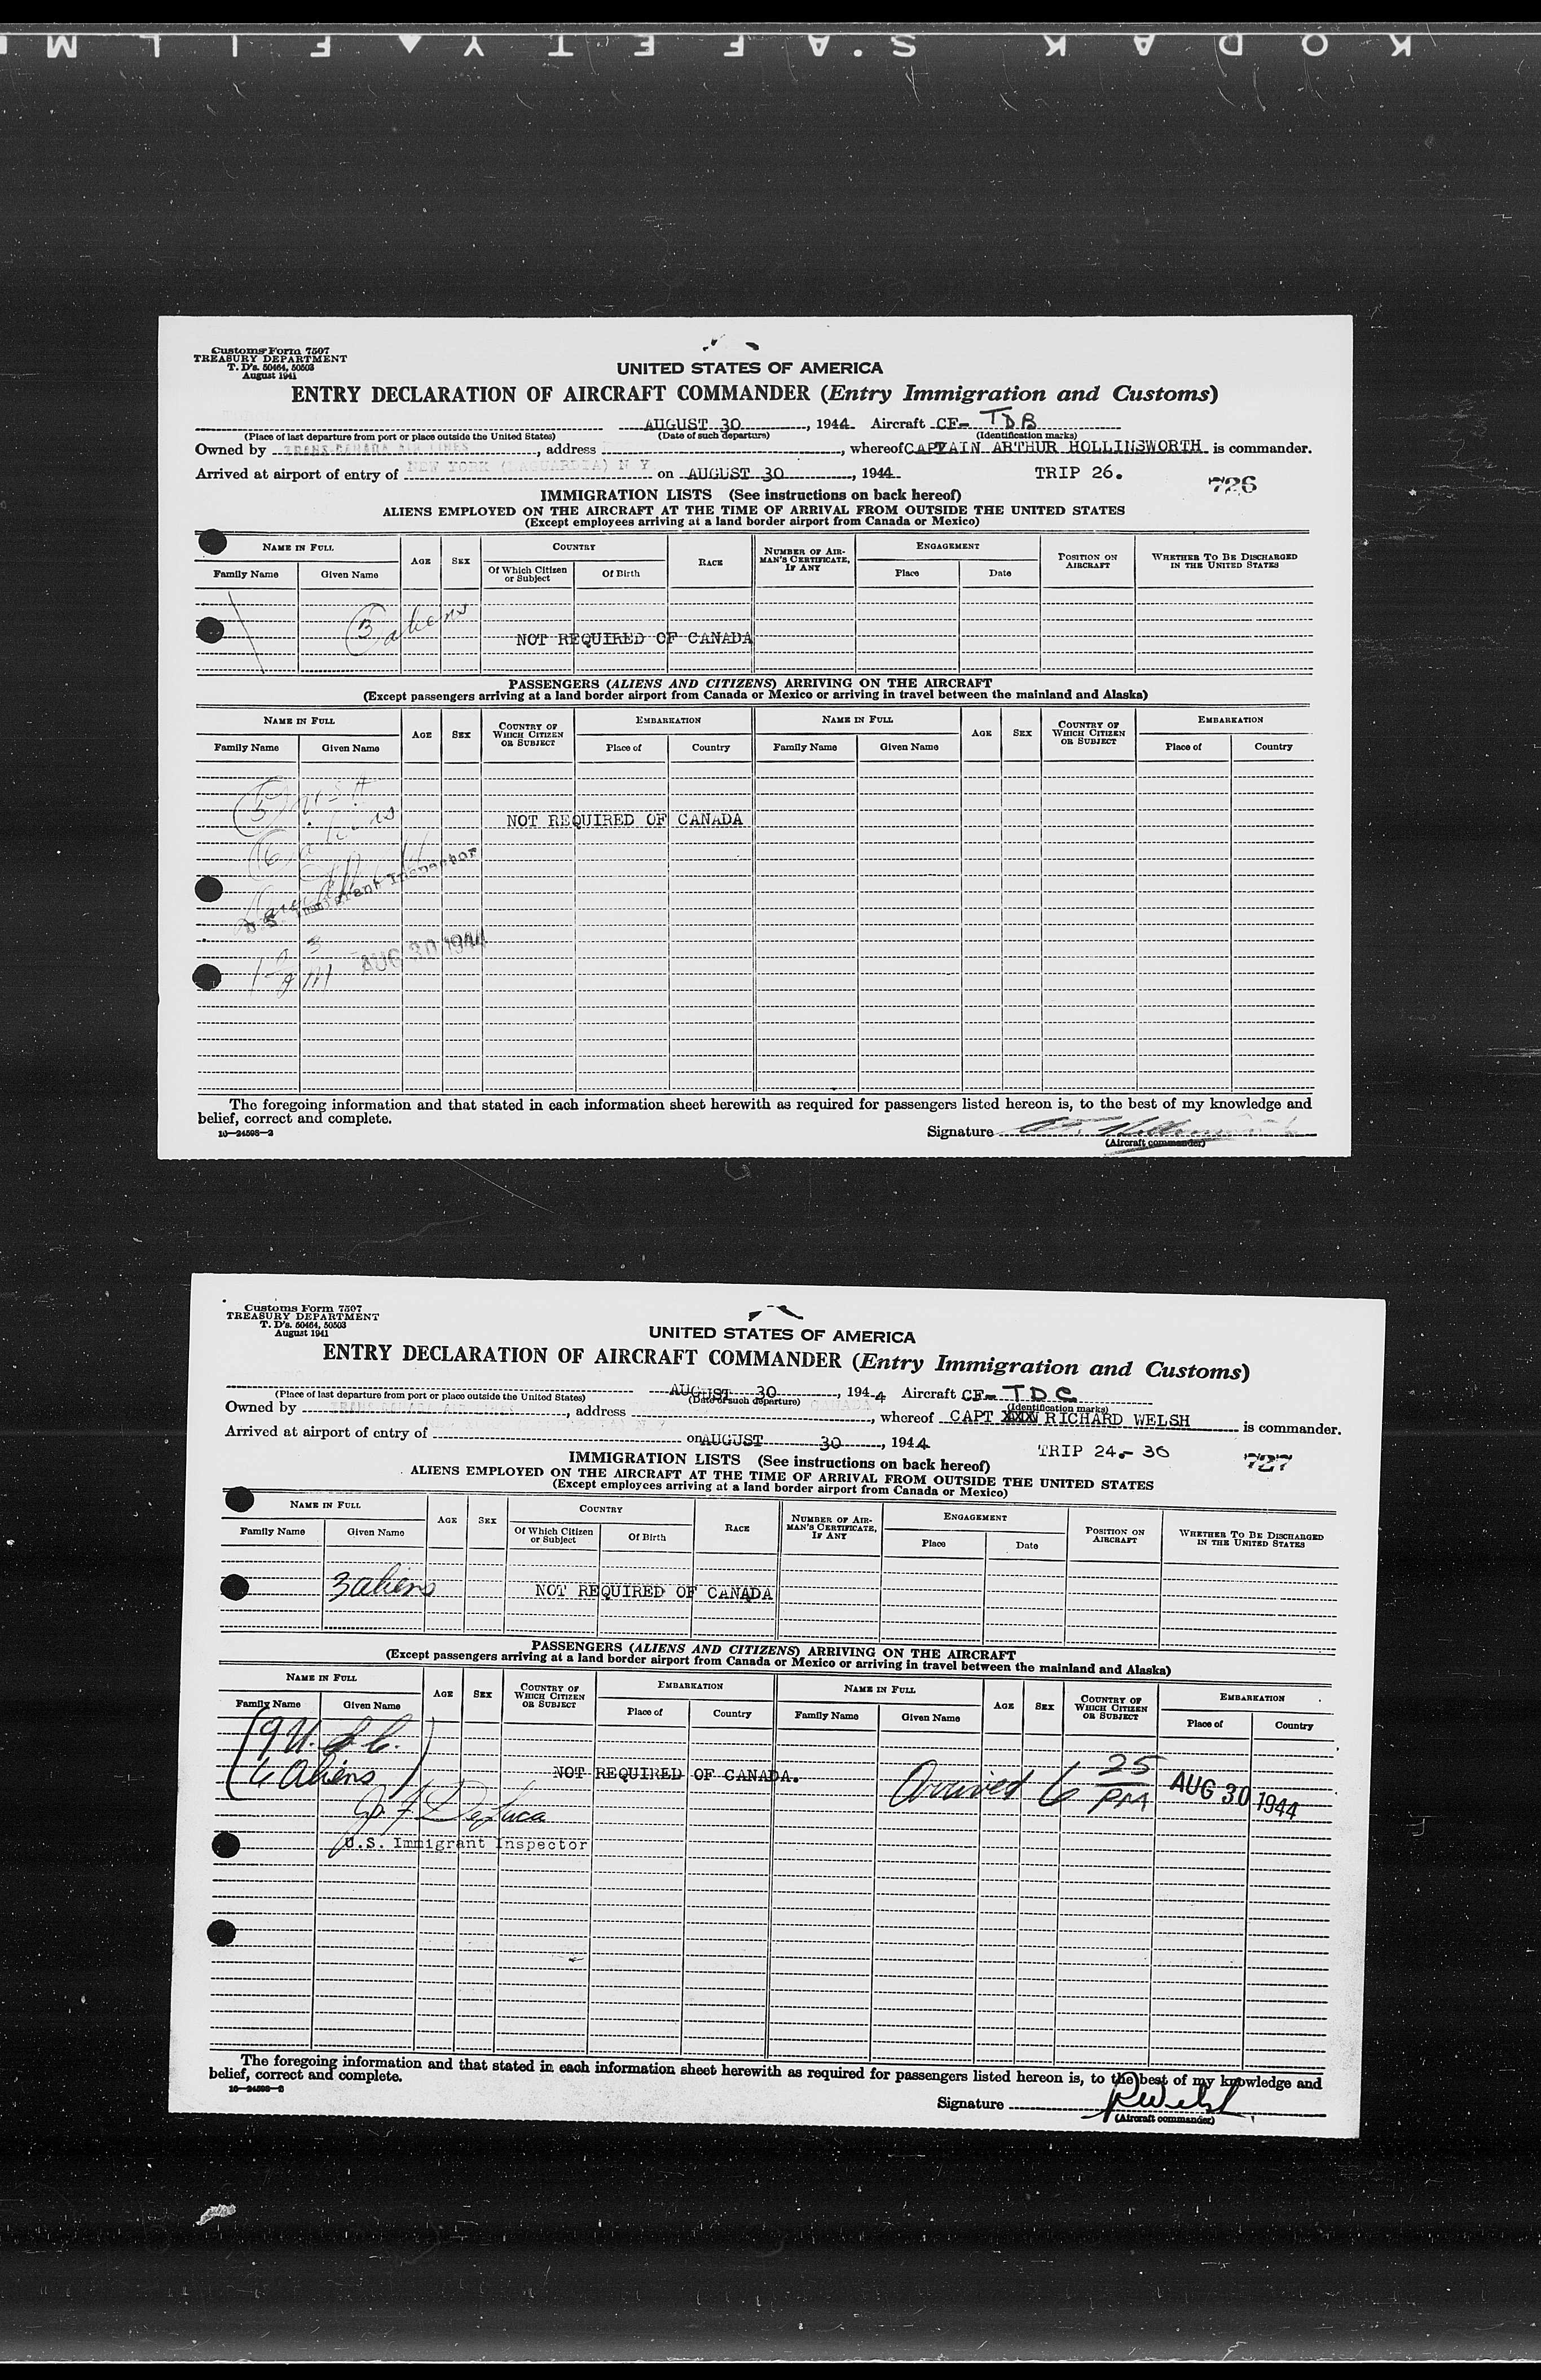 KODAK S.AFETY ▲ FILM
Customs Form 7507
TREASURY DEPARTMENT
T. D's. 50464, 50503
August 1941
UNITED STATES OF AMERICA
ENTRY DECLARATION OF AIRCRAFT COMMANDER (Entry Immigration and Customs)
AUGUST 30, 1944 Aircraft CF- TDB
(Place of last departure from port or place outside the United States) (Date of such departure) (Identification marks)
Owned by TRANS CANADA AIR LINES, address , whereof CAPTAIN ARTHUR HOLLINSWORTH is commander.
Arrived at airport of entry of NEW YORK (LAGUARDIA) N Y on AUGUST 30, 1944 TRIP 26.
726
IMMIGRATION LISTS (See instructions on back hereof)
ALIENS EMPLOYED ON THE AIRCRAFT AT THE TIME OF ARRIVAL FROM OUTSIDE THE UNITED STATES
(Except employees arriving at a land border airport from Canada or Mexico)
NAME IN FULL AGE SEX COUNTRY RACE NUMBER OF AIRMAN'S CERTIFICATE, IF ANY ENGAGEMENT POSITION ON AIRCRAFT WHETHER TO BE DISCHARGED IN THE UNITED STATES
Family Name Given Name Of Which Citizen or Subject Of Birth Place Date
3 aliens
NOT REQUIRED OF CANADA
PASSENGERS (ALIENS AND CITIZENS) ARRIVING ON THE AIRCRAFT
(Except passengers arriving at a land border airport from Canada or Mexico or arriving in travel between the mainland and Alaska)
NAME IN FULL AGE SEX COUNTRY OF WHICH CITIZEN OR SUBJECT EMBARKATION NAME IN FULL AGE SEX COUNTRY OF WHICH CITIZEN OR SUBJECT EMBARKATION
Family Name Given Name Place of Country Family Name Given Name Place of Country
NOT REQUIRED OF CANADA
6 aliens
U.S. Immigrant Inspector
AUG 30 1944
The foregoing information and that stated in each information sheet herewith as required for passengers listed hereon is, to the best of my knowledge and
belief, correct and complete.
16—24598-2
Signature
(Aircraft commander)
Customs Form 7507
TREASURY DEPARTMENT
T. D's. 50464, 50503
August 1941
UNITED STATES OF AMERICA
ENTRY DECLARATION OF AIRCRAFT COMMANDER (Entry Immigration and Customs)
AUGUST 30, 1944 Aircraft CF- TDC
(Place of last departure from port or place outside the United States) (Date of such departure) (Identification marks)
CANADA
Owned by TRANS CANADA AIR LINES, address , whereof CAPT XXXX RICHARD WELSH is commander.
Arrived at airport of entry of on AUGUST 30, 1944 TRIP 24.- 36
727
IMMIGRATION LISTS (See instructions on back hereof)
ALIENS EMPLOYED ON THE AIRCRAFT AT THE TIME OF ARRIVAL FROM OUTSIDE THE UNITED STATES
(Except employees arriving at a land border airport from Canada or Mexico)
NAME IN FULL AGE SEX COUNTRY RACE NUMBER OF AIRMAN'S CERTIFICATE, IF ANY ENGAGEMENT POSITION ON AIRCRAFT WHETHER TO BE DISCHARGED IN THE UNITED STATES
Family Name Given Name Of Which Citizen or Subject Of Birth Place Date
3 aliens
NOT REQUIRED OF CANADA
PASSENGERS (ALIENS AND CITIZENS) ARRIVING ON THE AIRCRAFT
(Except passengers arriving at a land border airport from Canada or Mexico or arriving in travel between the mainland and Alaska)
NAME IN FULL AGE SEX COUNTRY OF WHICH CITIZEN OR SUBJECT EMBARKATION NAME IN FULL AGE SEX COUNTRY OF WHICH CITIZEN OR SUBJECT EMBARKATION
Family Name Given Name Place of Country Family Name Given Name Place of Country
(9 U.S.C.
6 Aliens)
NOT REQUIRED OF CANADA.
Arrived 6 25 PM AUG 30 1944
DeLuca
U.S. Immigrant Inspector
The foregoing information and that stated in each information sheet herewith as required for passengers listed hereon is, to the best of my knowledge and
belief, correct and complete.
16—24598-2
Signature RWelsh
(Aircraft commander)